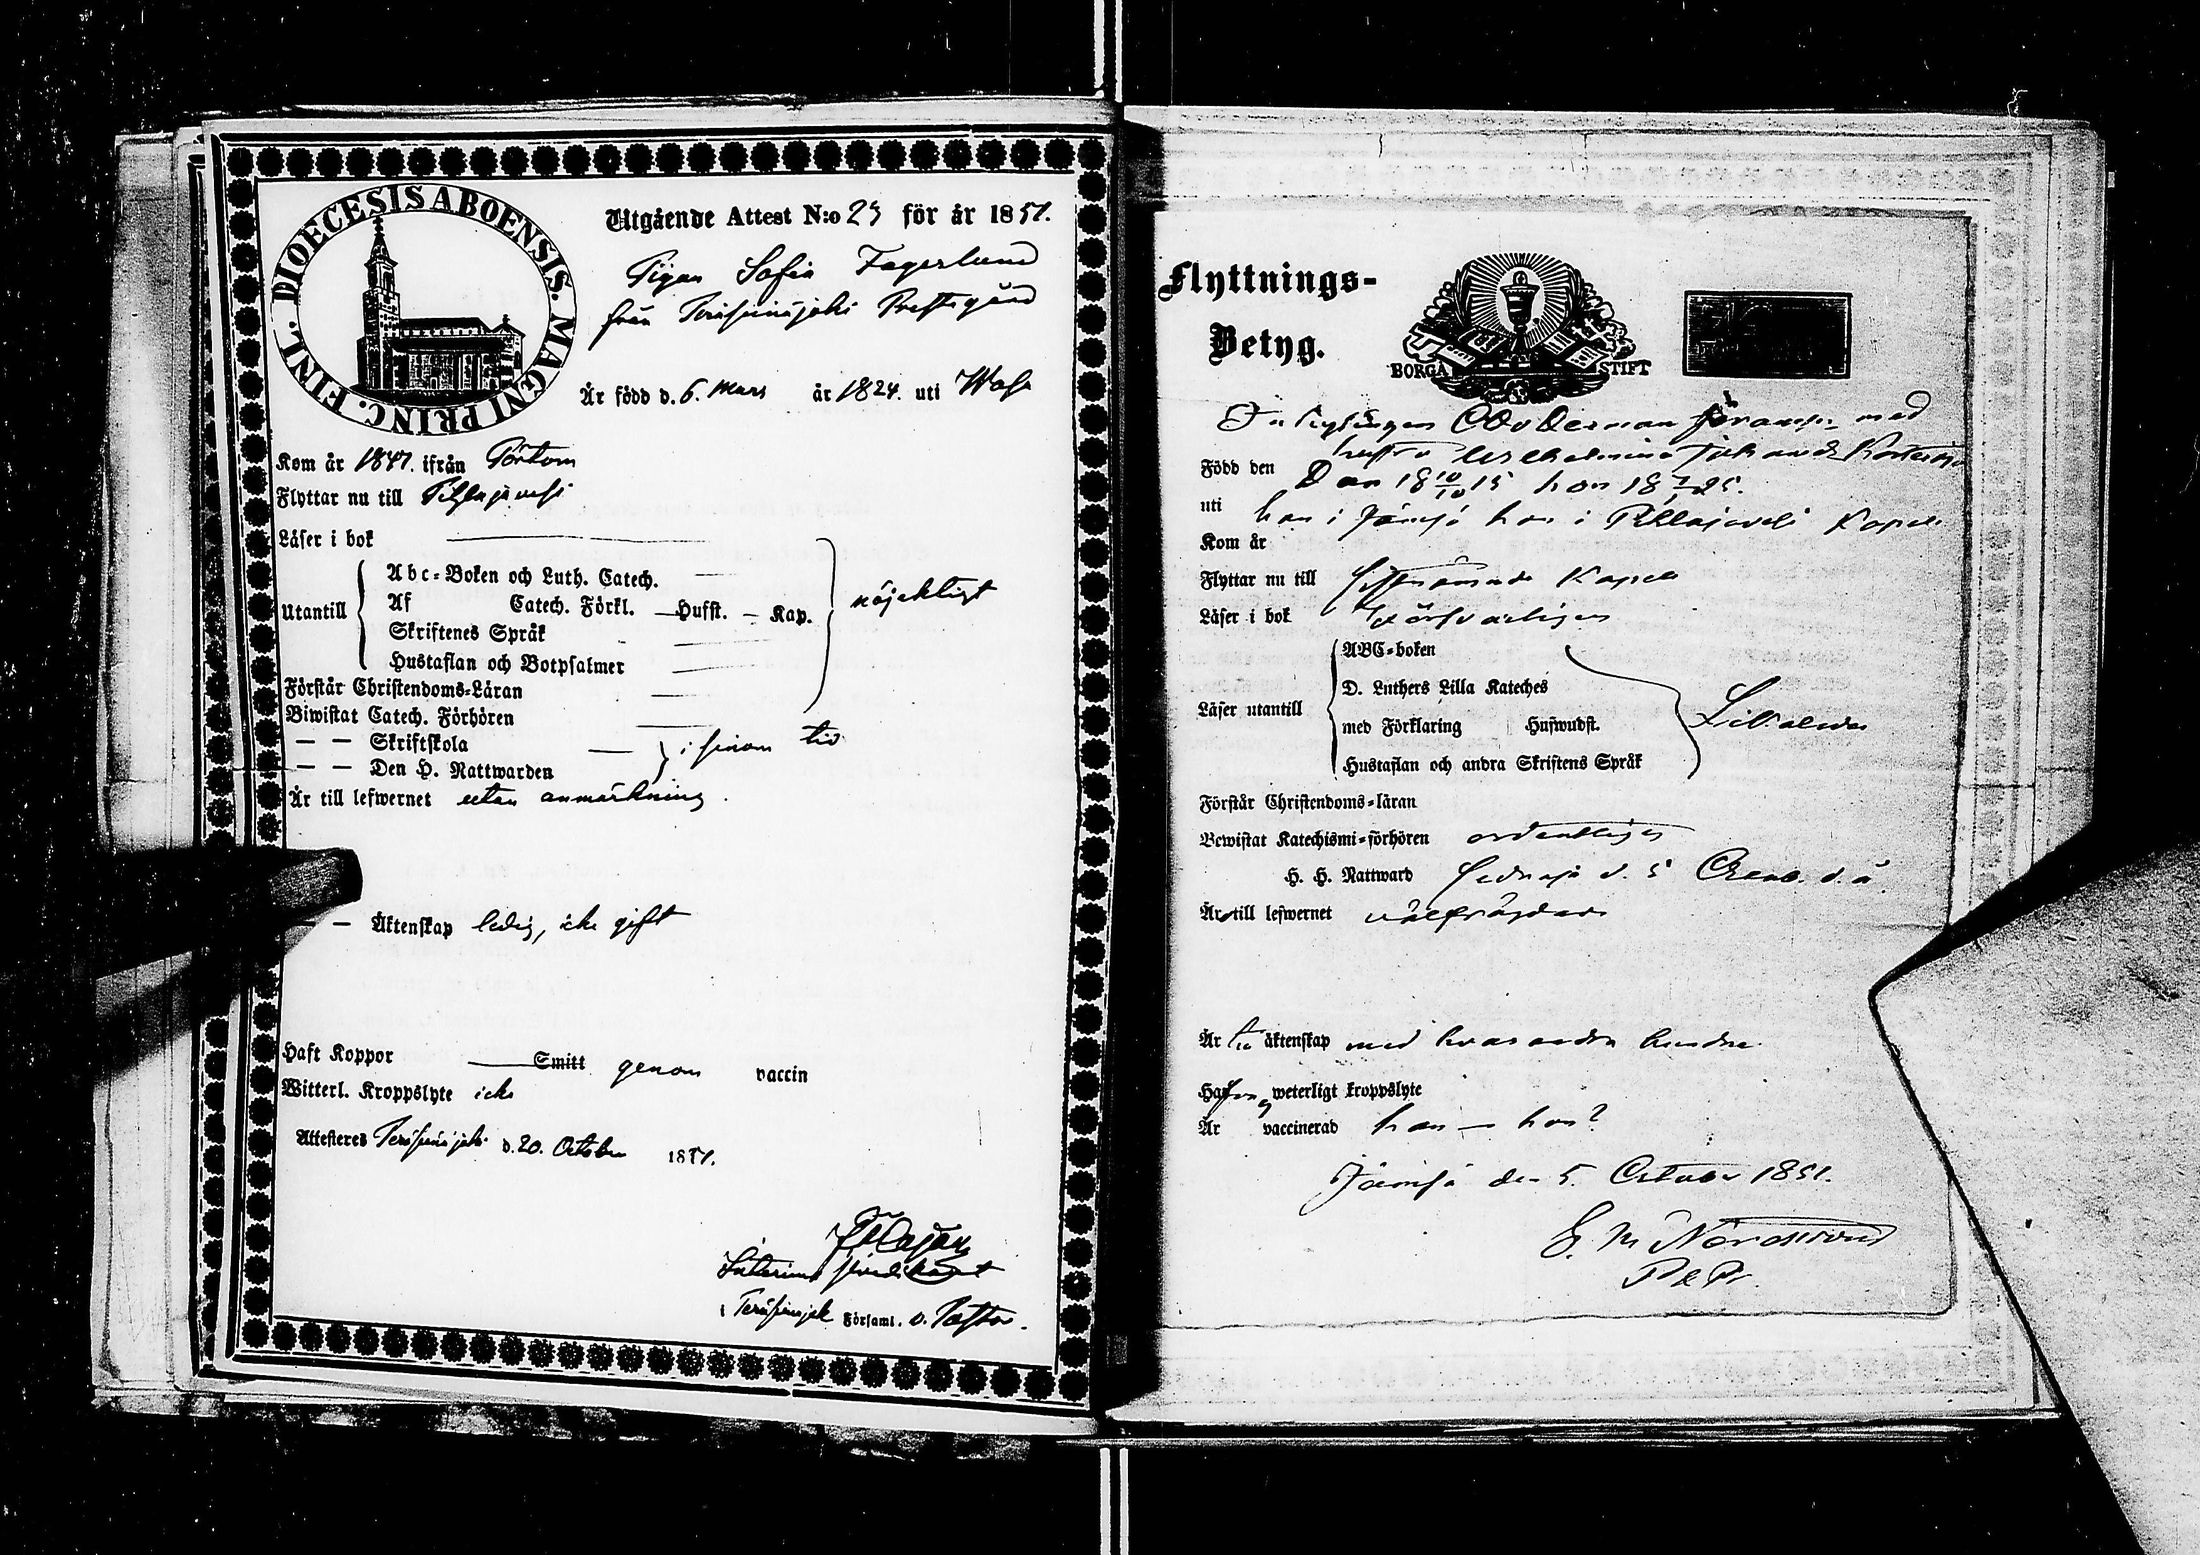 DIOECESIS ABOENSIS. MAGNI PRINC. FINL.
Utgående Attest N:o 25 för år 1851.
Pigan Sofia Fagerlund
från Prestgård
Är född d. 6. Mars år 1824. uti Wasa
Kom år 1847. ifrån Pörtom
Flyttar nu till Pihlajavesi
Läser i bok
Abc-Boken och Luth. Catech.
Utantill Af Catech. Förkl. — Hufst. — Kap. nöjaktigt
Skriftenes Språk
Hustaflan och Botpsalmer
Förstår Christendoms-Läran
Biwistat Catech. Förhören
— — Skriftskola i sinom tid
— — Den H. Nattwarden
Är till lefwernet utan anmärkning.
— Äktenskap ledig, icke gift
Haft Koppor Smitt genom vaccin
Witterl. Kroppslyte icke
Attesteras d. 20. October 1851.
Interims
i Församl. v. Pastor.
Flyttnings-
Betyg.
BORGÅ STIFT
med
hustru Wilhelmina
Född den 18 10/10 15 hon 18
uti han i Jämsä hon i Pihlajavesi Kapell
Kom år
Flyttar nu till Kapell
Läser i bok försvarligen
ABC-boken
D. Luthers Lilla Kateches
Läser utantill med Förklaring Hufwudst.
Hustaflan och andra Skriftens Språk
Förstår Christendoms-läran
Bewistat Katechismi-förhören ordentligen
H. H. Nattward sednast d. 5 d. å.
Är till lefwernet välfrägdade
Är äktenskap med hvarandra
weterligt kroppslyte
Är vaccinerad han — hon?
Jämsä den 5. October 1851.